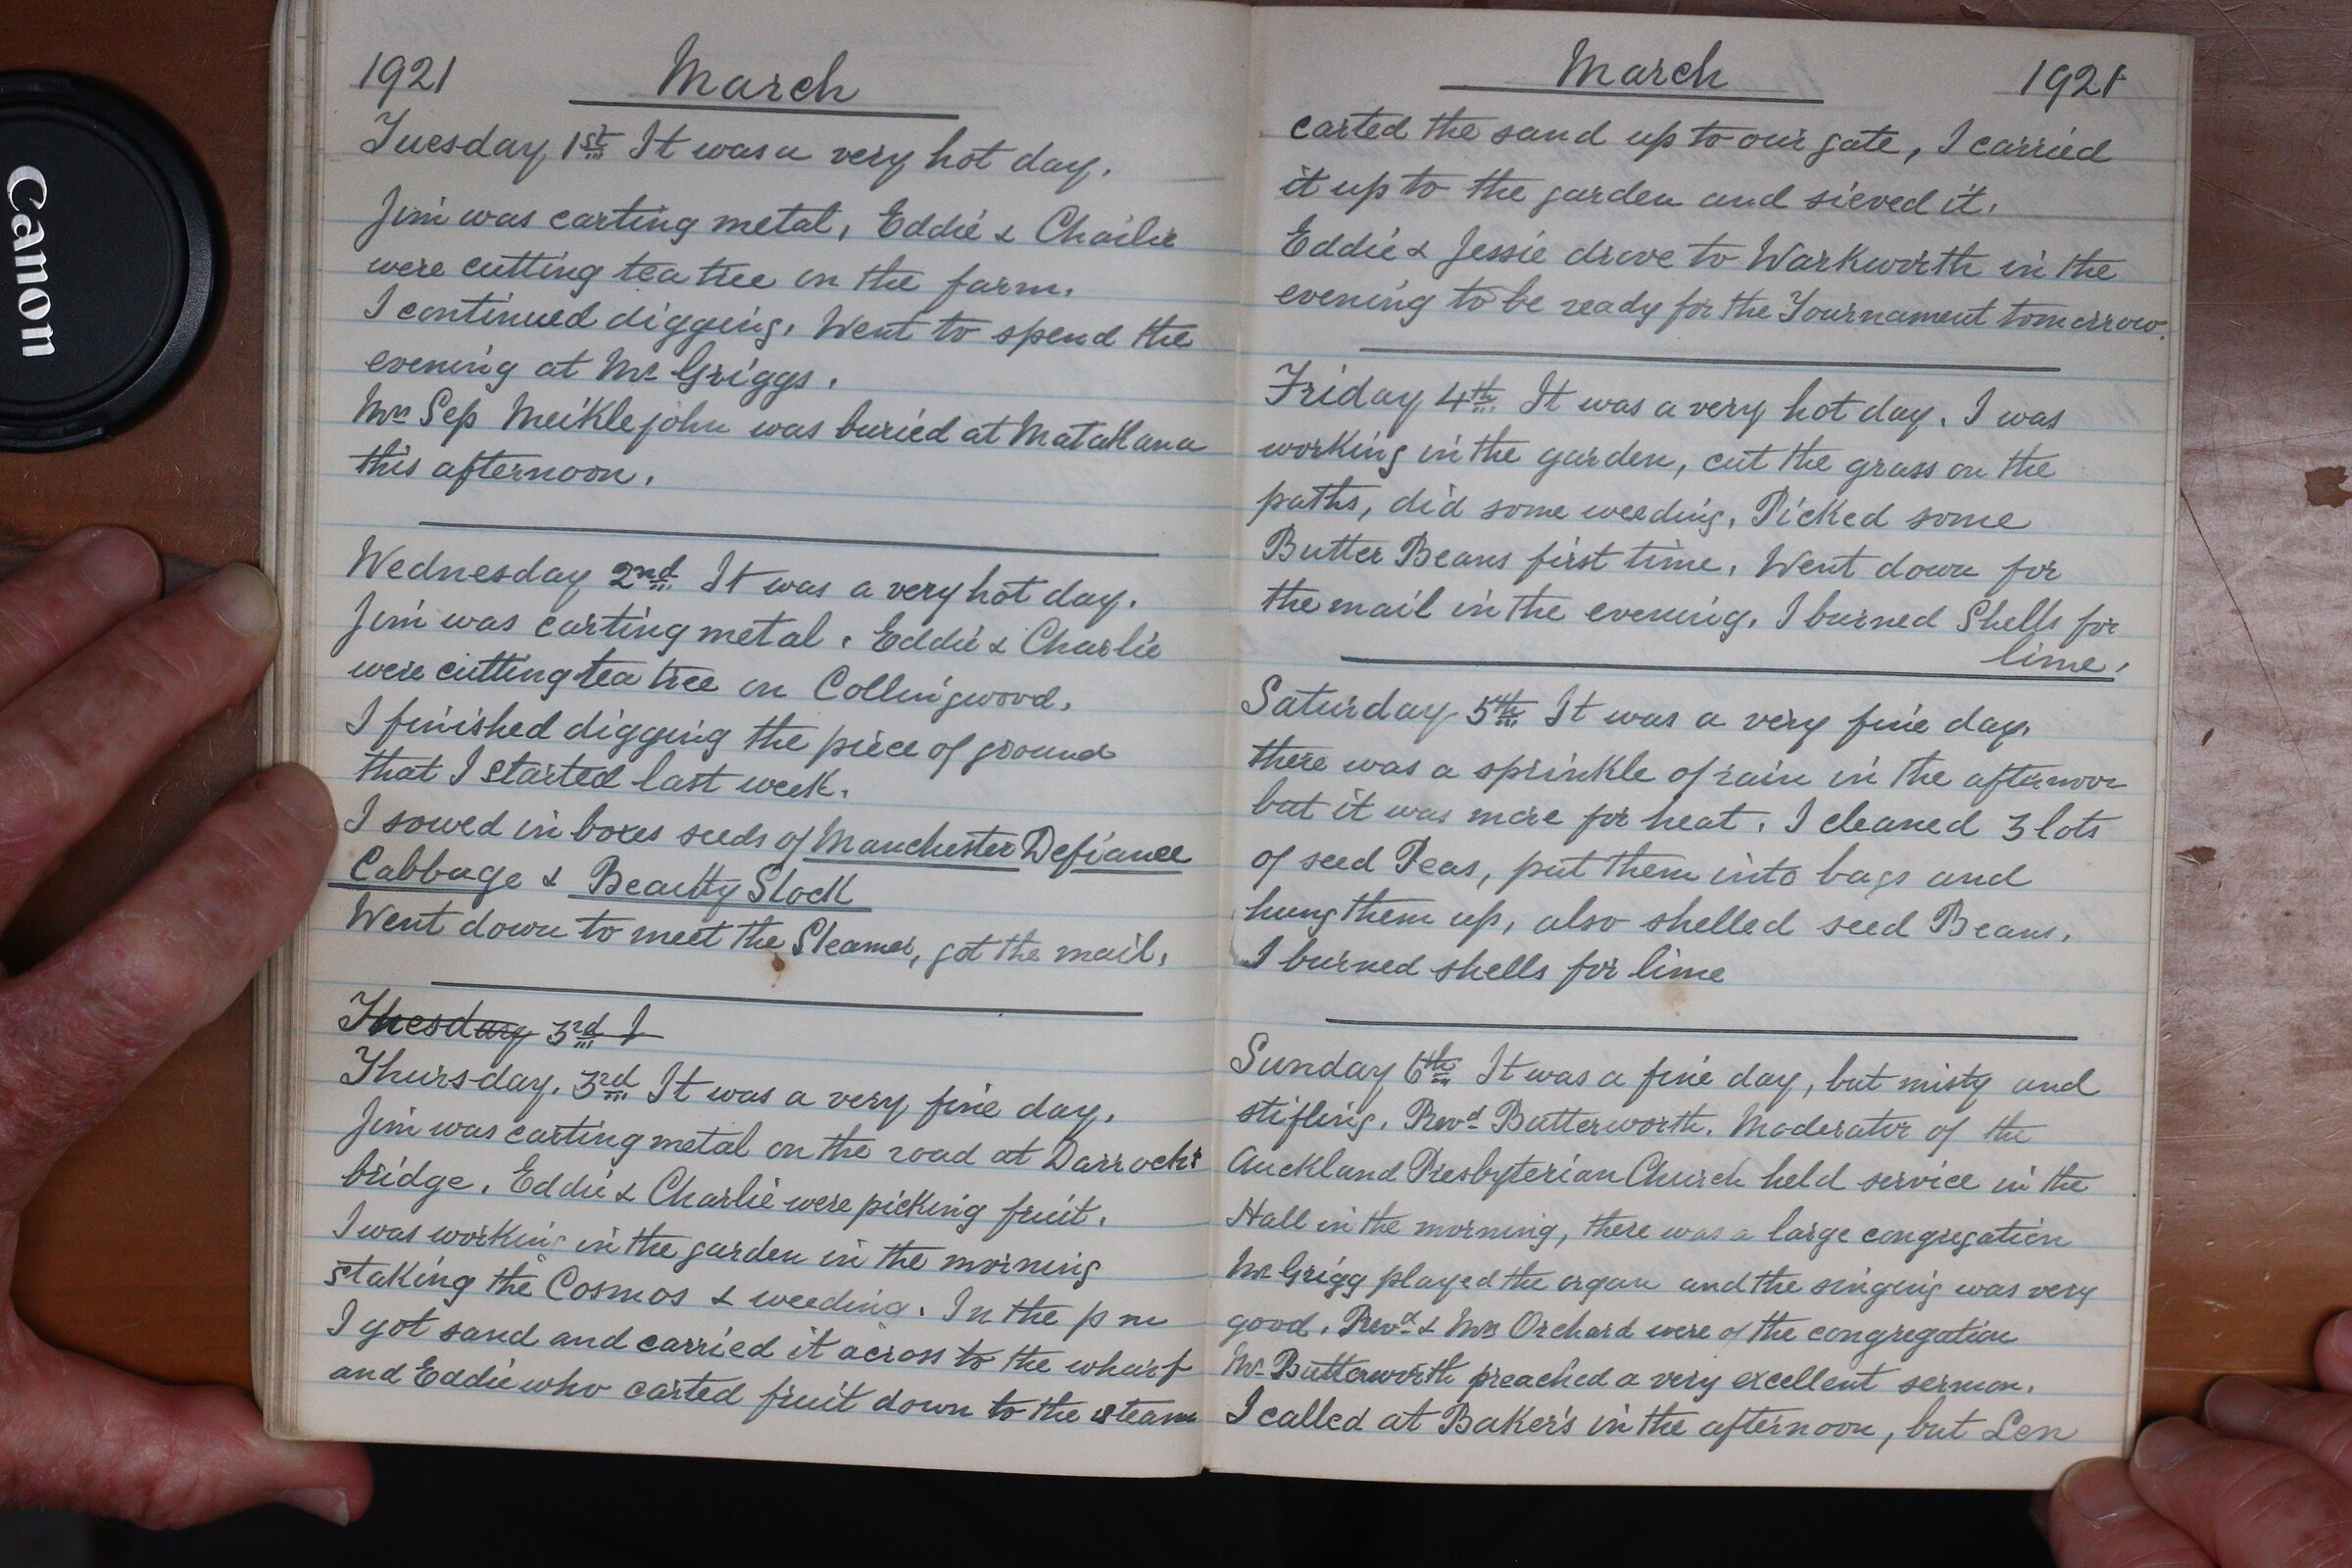 Canon
1921 March
Tuesday 1st It was a very hot day.
Jim was carting metal, Eddie & Charlie
were cutting tea tree on the farm.
I continued digging. Went to spend the
evening at Mr Griggs.
Mrs Sep Meiklejohn was buried at Matakana
this afternoon.
Wednesday 2nd It was a very hot day.
Jim was carting metal. Eddie & Charlie
were cutting tea tree on Collingwood.
I finished digging the piece of ground
that I started last week.
I sowed in boxes seeds of Manchester Defiance
Cabbage & Beauty Stock
Went down to meet the Steamer, got the mail.
Tuesday 3rd I
Thursday. 3rd It was a very fine day.
Jim was carting metal on the road at Darrochs
bridge. Eddie & Charlie were picking fruit.
I was working in the garden in the morning
staking the Cosmos & weeding. In the pm
I got sand and carried it across to the wharf
and Eddie who carted fruit down to the steam
March 1921
carted the sand up to our gate, I carried
it up to the garden and sieved it.
Eddie & Jessie drove to Warkworth in the
evening to be ready for the Tournament tomorrow.
Friday 4th It was a very hot day. I was
working in the garden, cut the grass on the
paths, did some weeding. Picked some
Butter Beans first time. Went down for
the mail in the evening. I burned Shells for
lime.
Saturday 5th It was a very fine day.
there was a sprinkle of rain in the afternoon
but it was more for heat. I cleaned 3 lots
of seed Peas, put them into bags and
hung them up, also shelled seed Beans.
I burned shells for lime
Sunday 6th It was a fine day, but misty and
stifling. Revd Butterworth. Moderator of the
Auckland Presbyterian Church held service in the
Hall in the morning, there was a large congregation
Mr Grigg played the organ and the singing was very
good. Revd & Mrs Orchard were of the congregation
Mr Butterworth preached a very excellent sermon.
I called at Baker's in the afternoon, but Len